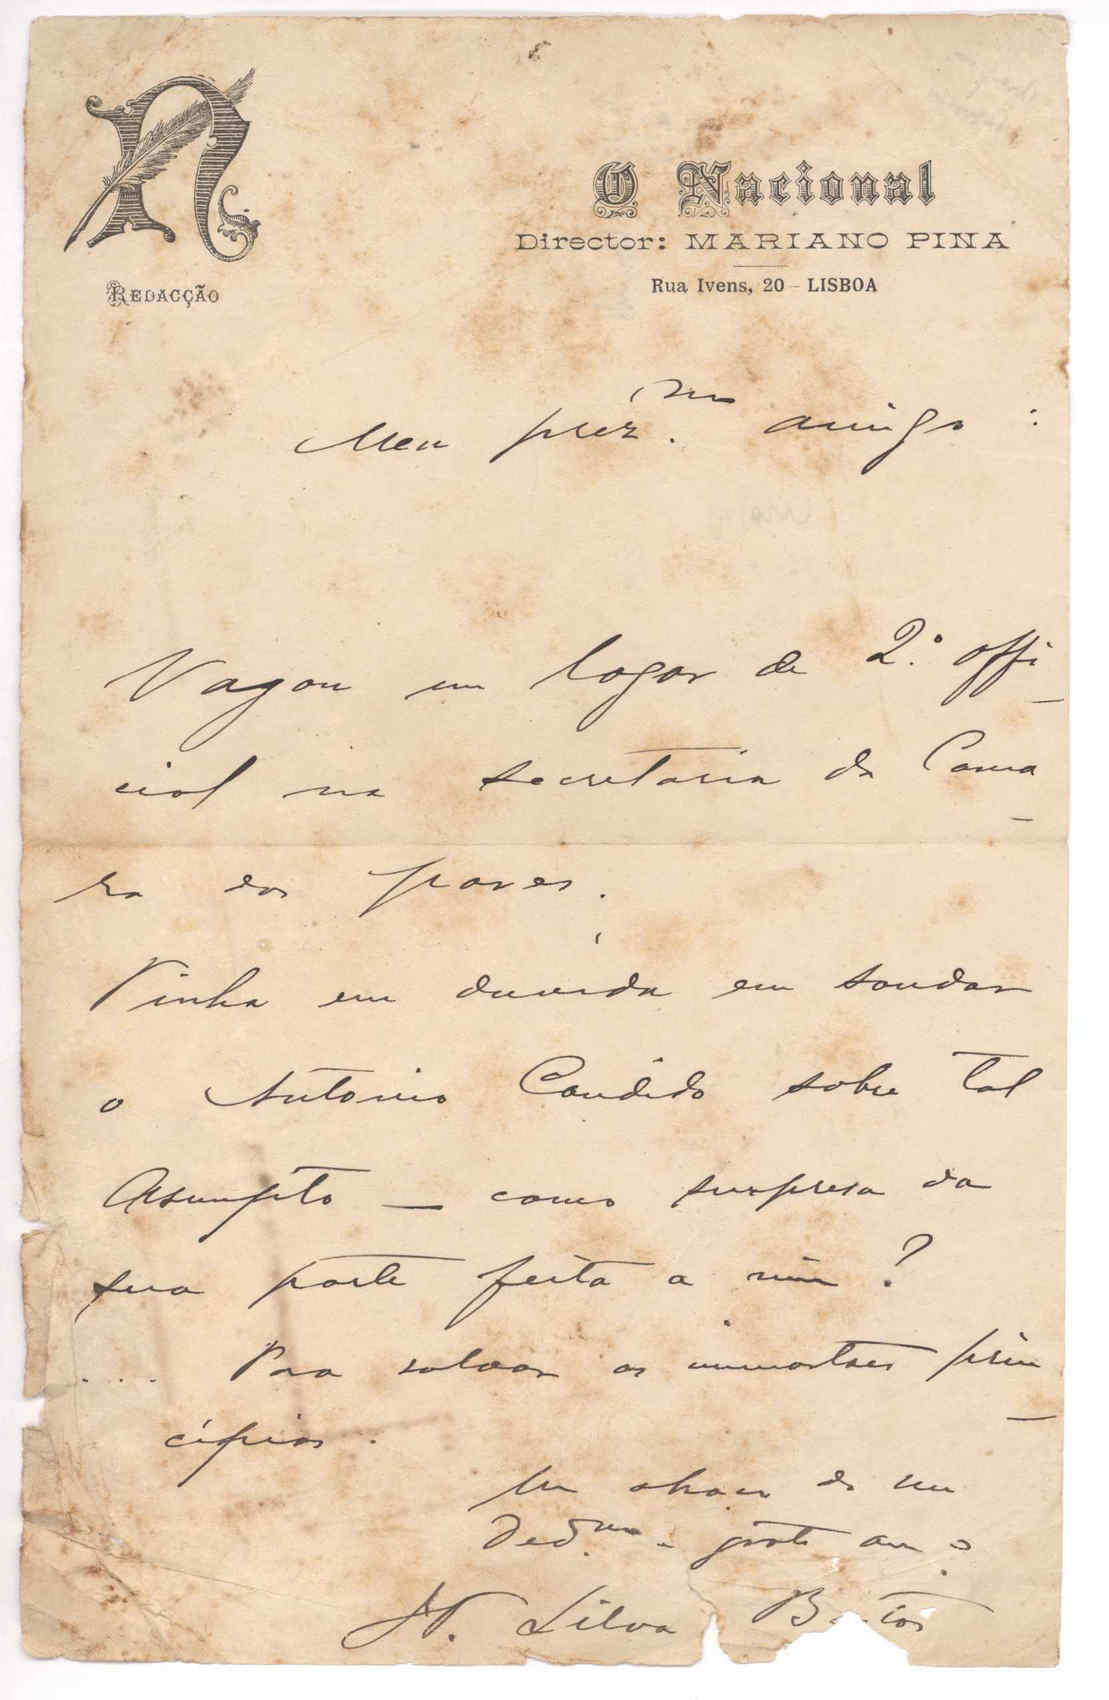 N
O Nacional
Director: MARIANO PINA
Rua Ivens, 20 - LISBOA
REDACÇÃO
Meu prez.mo amigo:
Vagou um logar de 2.º offi-
cial na secretaria da Cama-
ra dos pares.
Tinha em duvida em sondar
o Antonio Candido sobre tal
Assumpto — como surpresa da
sua parte feita a mim?
... Para salvar os immortaes prin-
cipios.
Um abraço do seu
Ded.mo e grato am.º
Silva